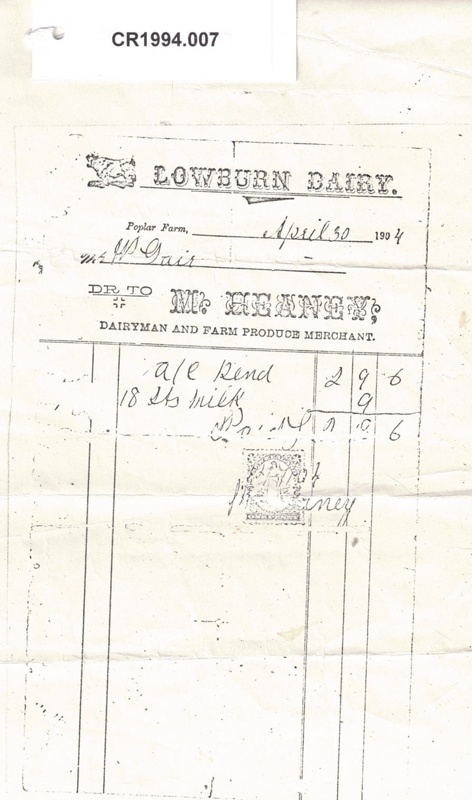 CR1994.007
LOWBURN DAIRY.
Poplar Farm, April 30 1904
Mr
DR TO M. HEANEY,
DAIRYMAN AND FARM PRODUCE MERCHANT.
a/c Rend 2 9 6
18 Milk 9
Paid 9 6